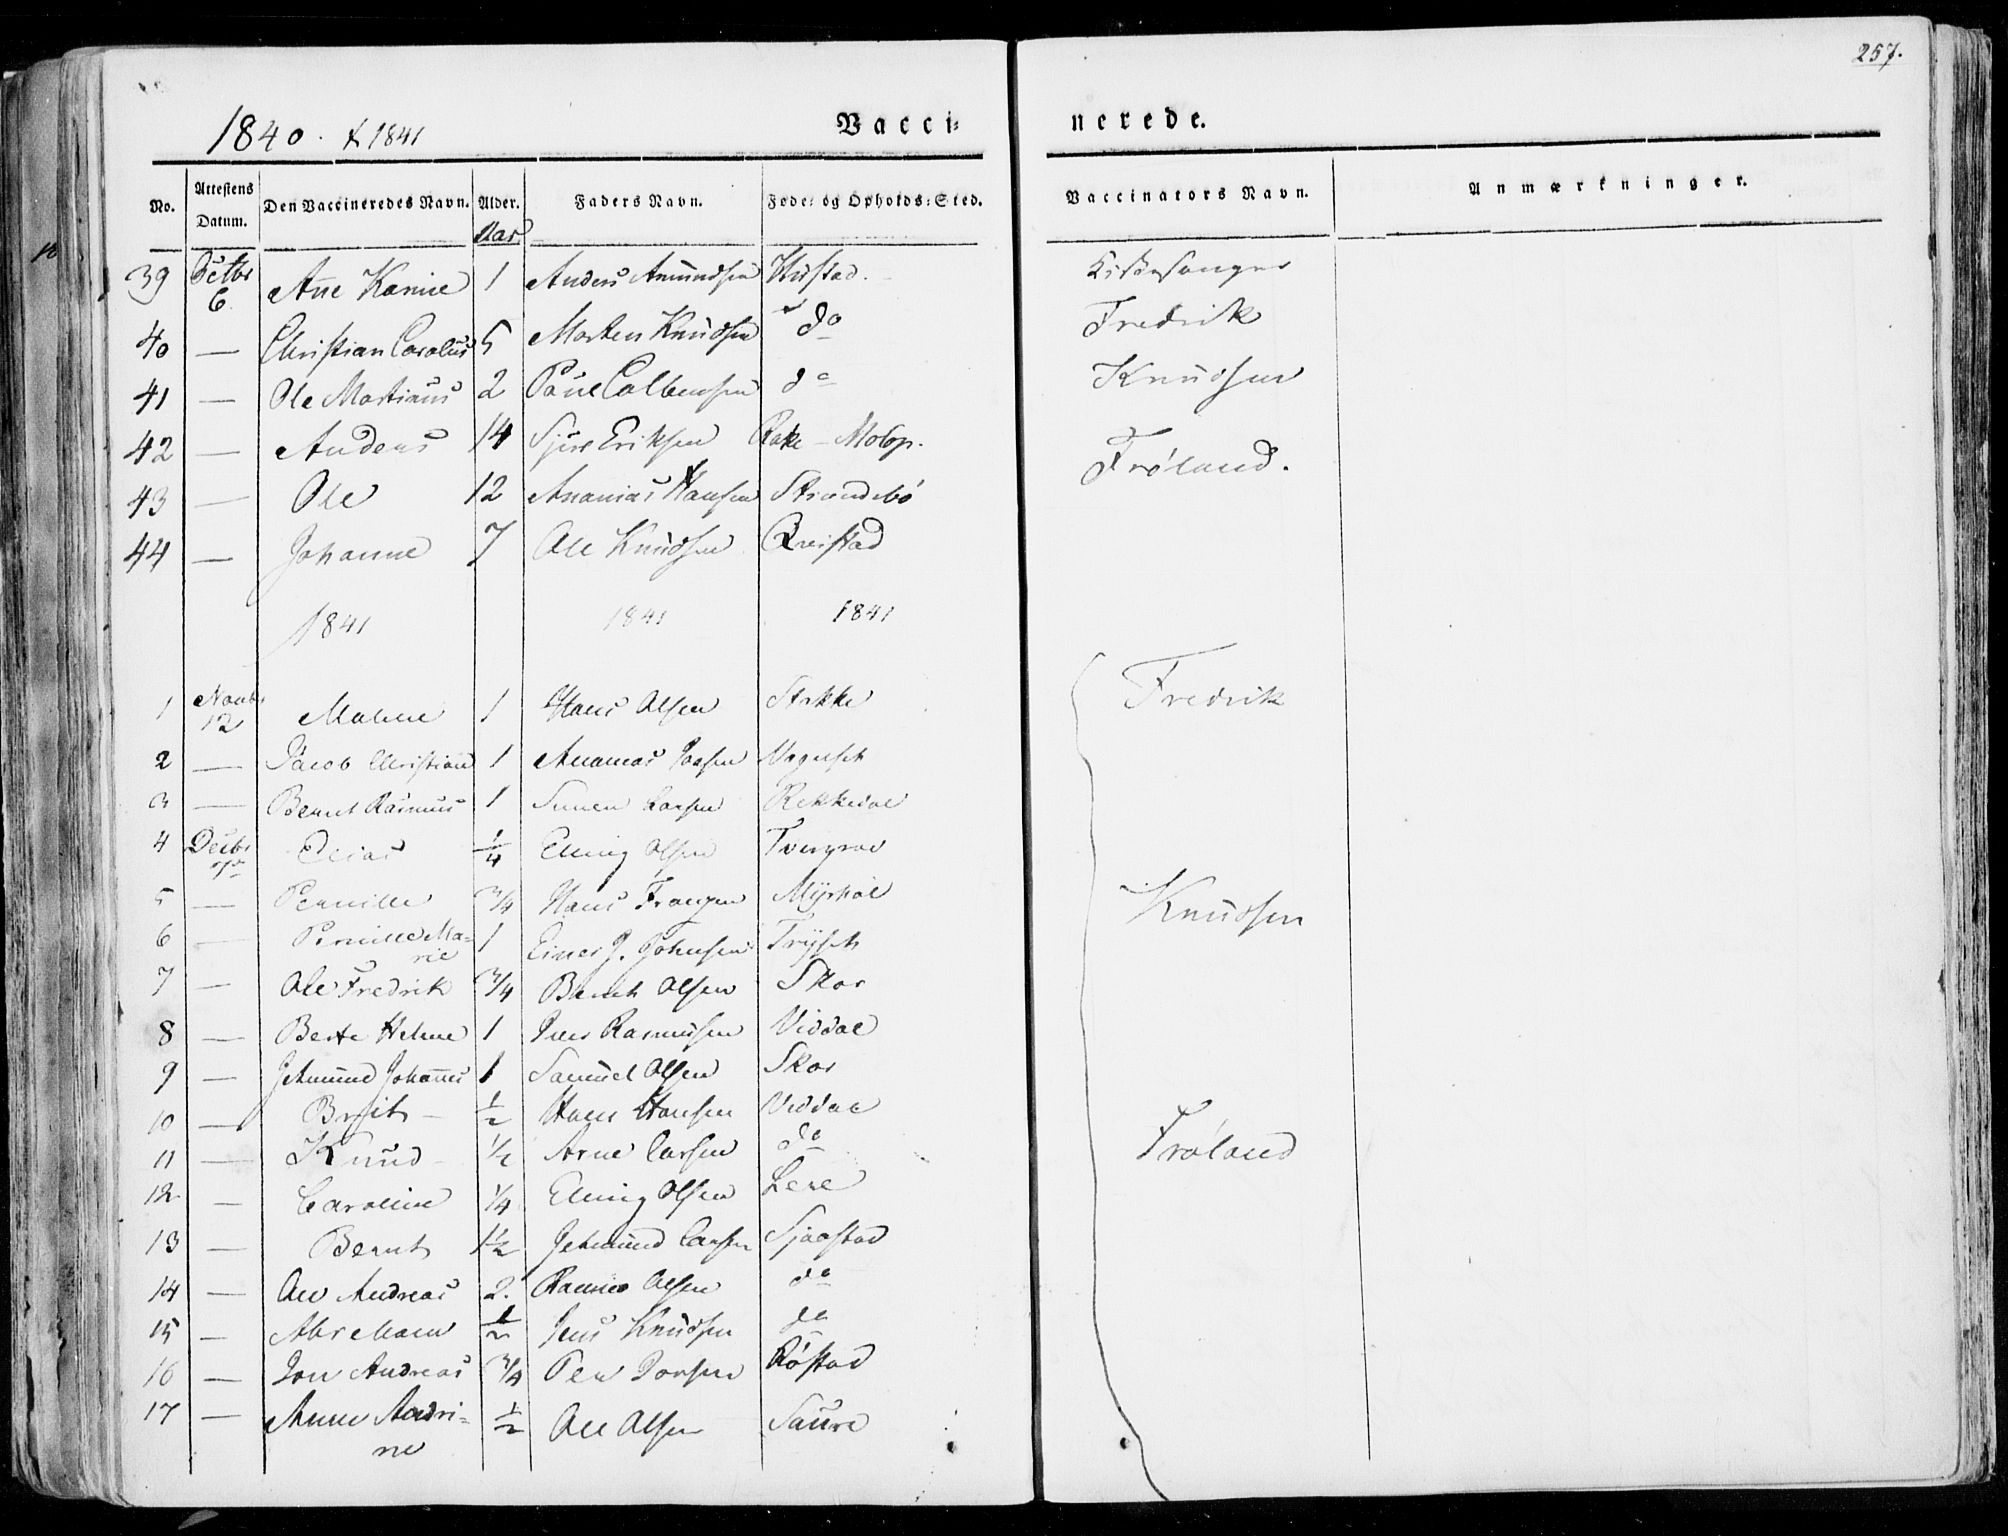 257.
1840. & 1841
Vacci-
nerede.
No. Attestens Datum. Den Vaccineredes Navn. Alder. Faders Navn. Føde- og Opholds-Sted. Vaccinators Navn. Anmærkninger.
Aar
39 Octbr 6 Ane Karine 1 Anders Amundsen Hustad. Kirkesanger
40 — Christian Carolus 5 Morten Knudsen do Fredrik
41 — Ole Martinus 2 Poul Colbensen do Knudsen
42 — Anders 14 Sjur Eriksen Frøland.
43 — Ole 12 Ananias Hansen Strandebø
44 — Johanne 7 Ole Knudsen Qveistad
1841 1841 1841
1 Novbr 12 Malene 1 Hans Olsen Stokke Fredrik
2 — Jacob Christian 1 Ananias
3 — Bernt Rasmus 1 Larsen Rekkedal
4 Decbr Elias 1/4 Elling Olsen
5 — Pernille 3/4 Hans Myrhol Knudsen
6 — Pernille Ma-
rie 1 Einer J. Johnsen
7 — Ole Fredrik 3/4 Bernt Olsen Skor
8 — Berte Helene 1 Iver Rasmussen Viddal
9 — Jetmund Johannes 1 Samuel Olsen Skor
10 — Brit 1/2 Hans Hansen Viddal
11 — Knud 1/2 Arne Larsen do Frøland
12 — Caroline 1/4 Elling Olsen
13 — Bernt 1 1/2 Jetmund Larsen Sjaastad
14 — Ole Andreas 2. Rasmus Olsen do
15 — Abraham 1/2 Jens Knudsen do
16 — Jon Andreas 3/4 Peder Røstad
17 — Anne Andri-
ne 1/2 Ole Olsen Saure